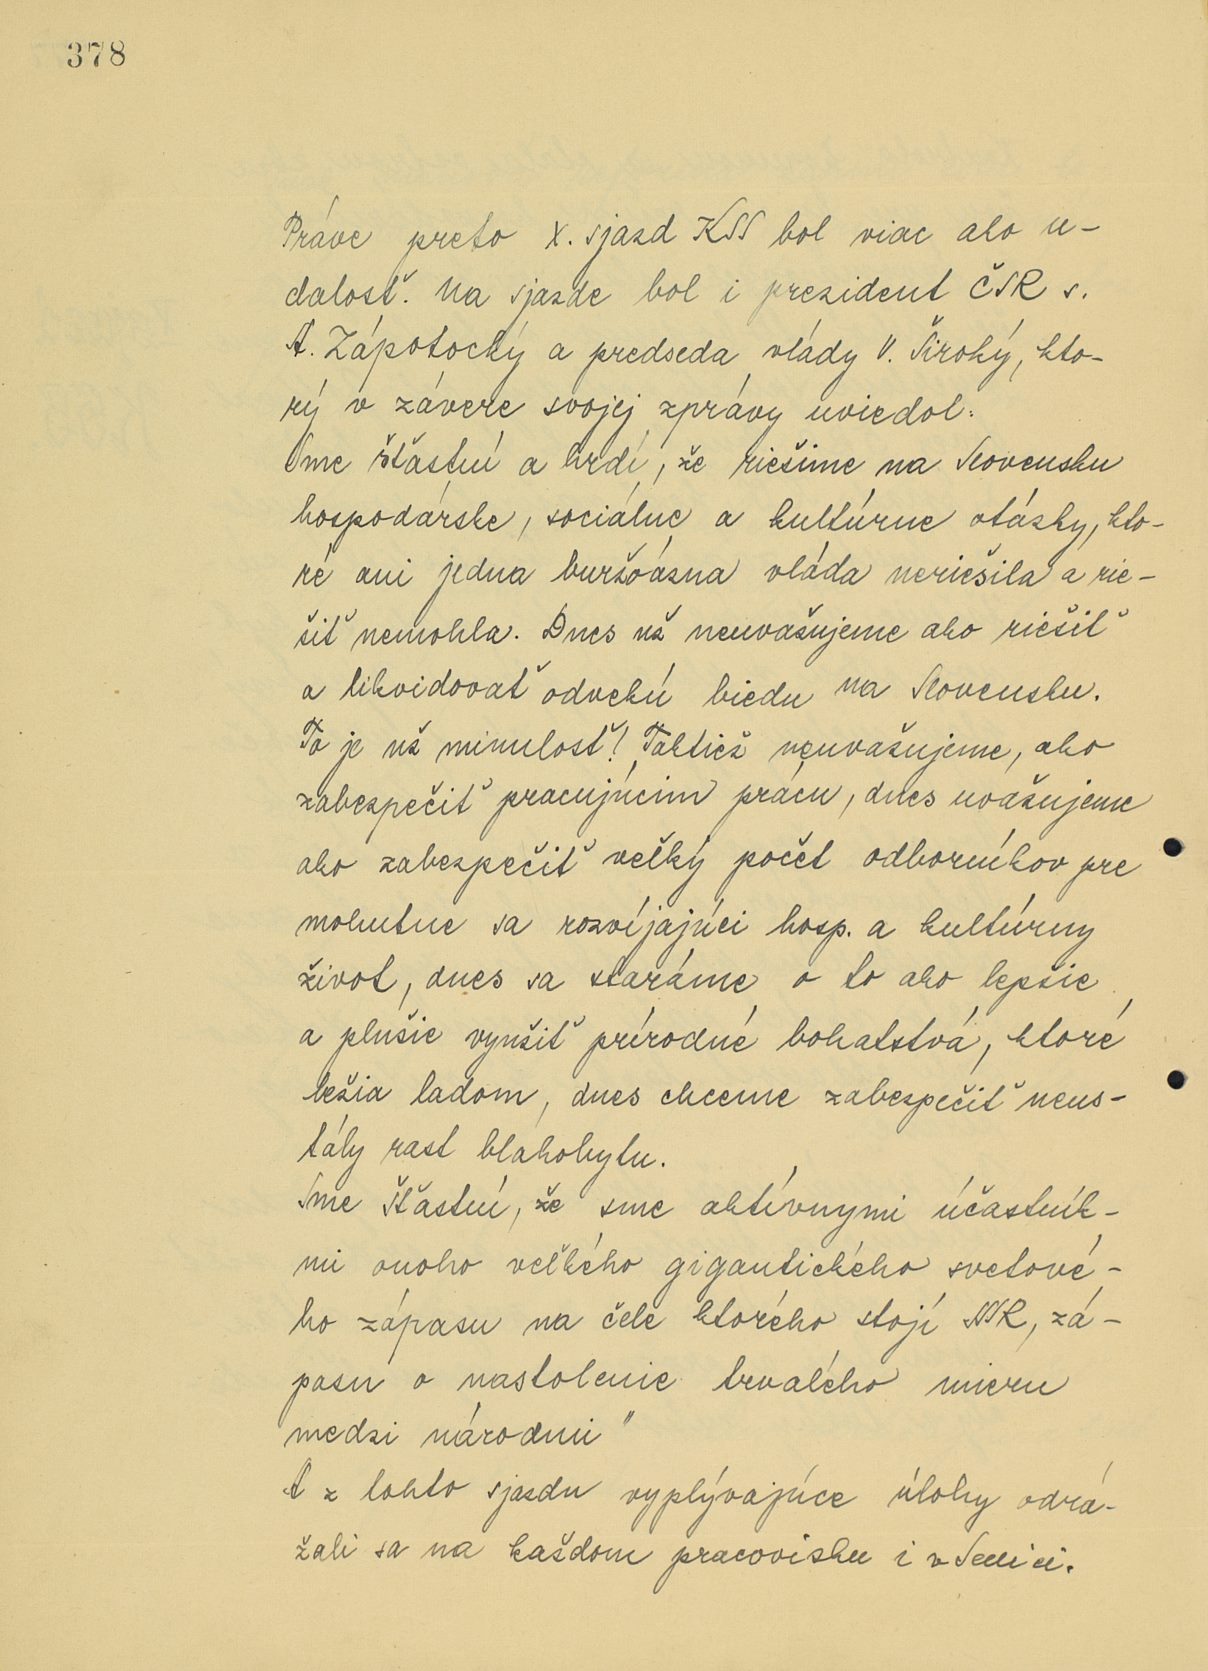 378
Práve preto X. sjazd KSS bol viac ako u-
dalosť. Na sjazde bol i prezident ČSR s.
A. Zápotocký a predseda vlády V. Široký, kto-
rý v závere svojej zprávy uviedol:
Sme šťastní a hrdí, že riešime na Slovensku
hospodárske, sociálne a kultúrne otázky, kto-
ré ani jedna buržoázna vláda neriešila a rie-
šiť nemohla. Dnes už neuvažujeme ako riešiť
a likvidovať odvekú biedu na Slovensku.
To je už minulosť! Taktiež neuvažujeme, ako
zabezpečiť pracujúcim prácu, dnes uvažujeme
ako zabezpečiť veľký počet odborníkov pre
mohutne sa rozvíjajúci hosp. a kultúrny
život, dnes sa staráme o to ako lepšie
a plnšie využiť prírodné bohatstvá, ktoré
ležia ladom, dnes chceme zabezpečiť neus-
tály rast blahobytu.
Sme šťastní, že sme aktívnymi účastník-
mi onoho veľkého gigantického svetové-
ho zápasu na čele ktorého stojí SSSR, zá-
pasu o nastolenie trvalého mieru
medzi národmi"
A z tohto sjazdu vyplývajúce úlohy odrá-
žali sa na každom pracovisku i v Senici.